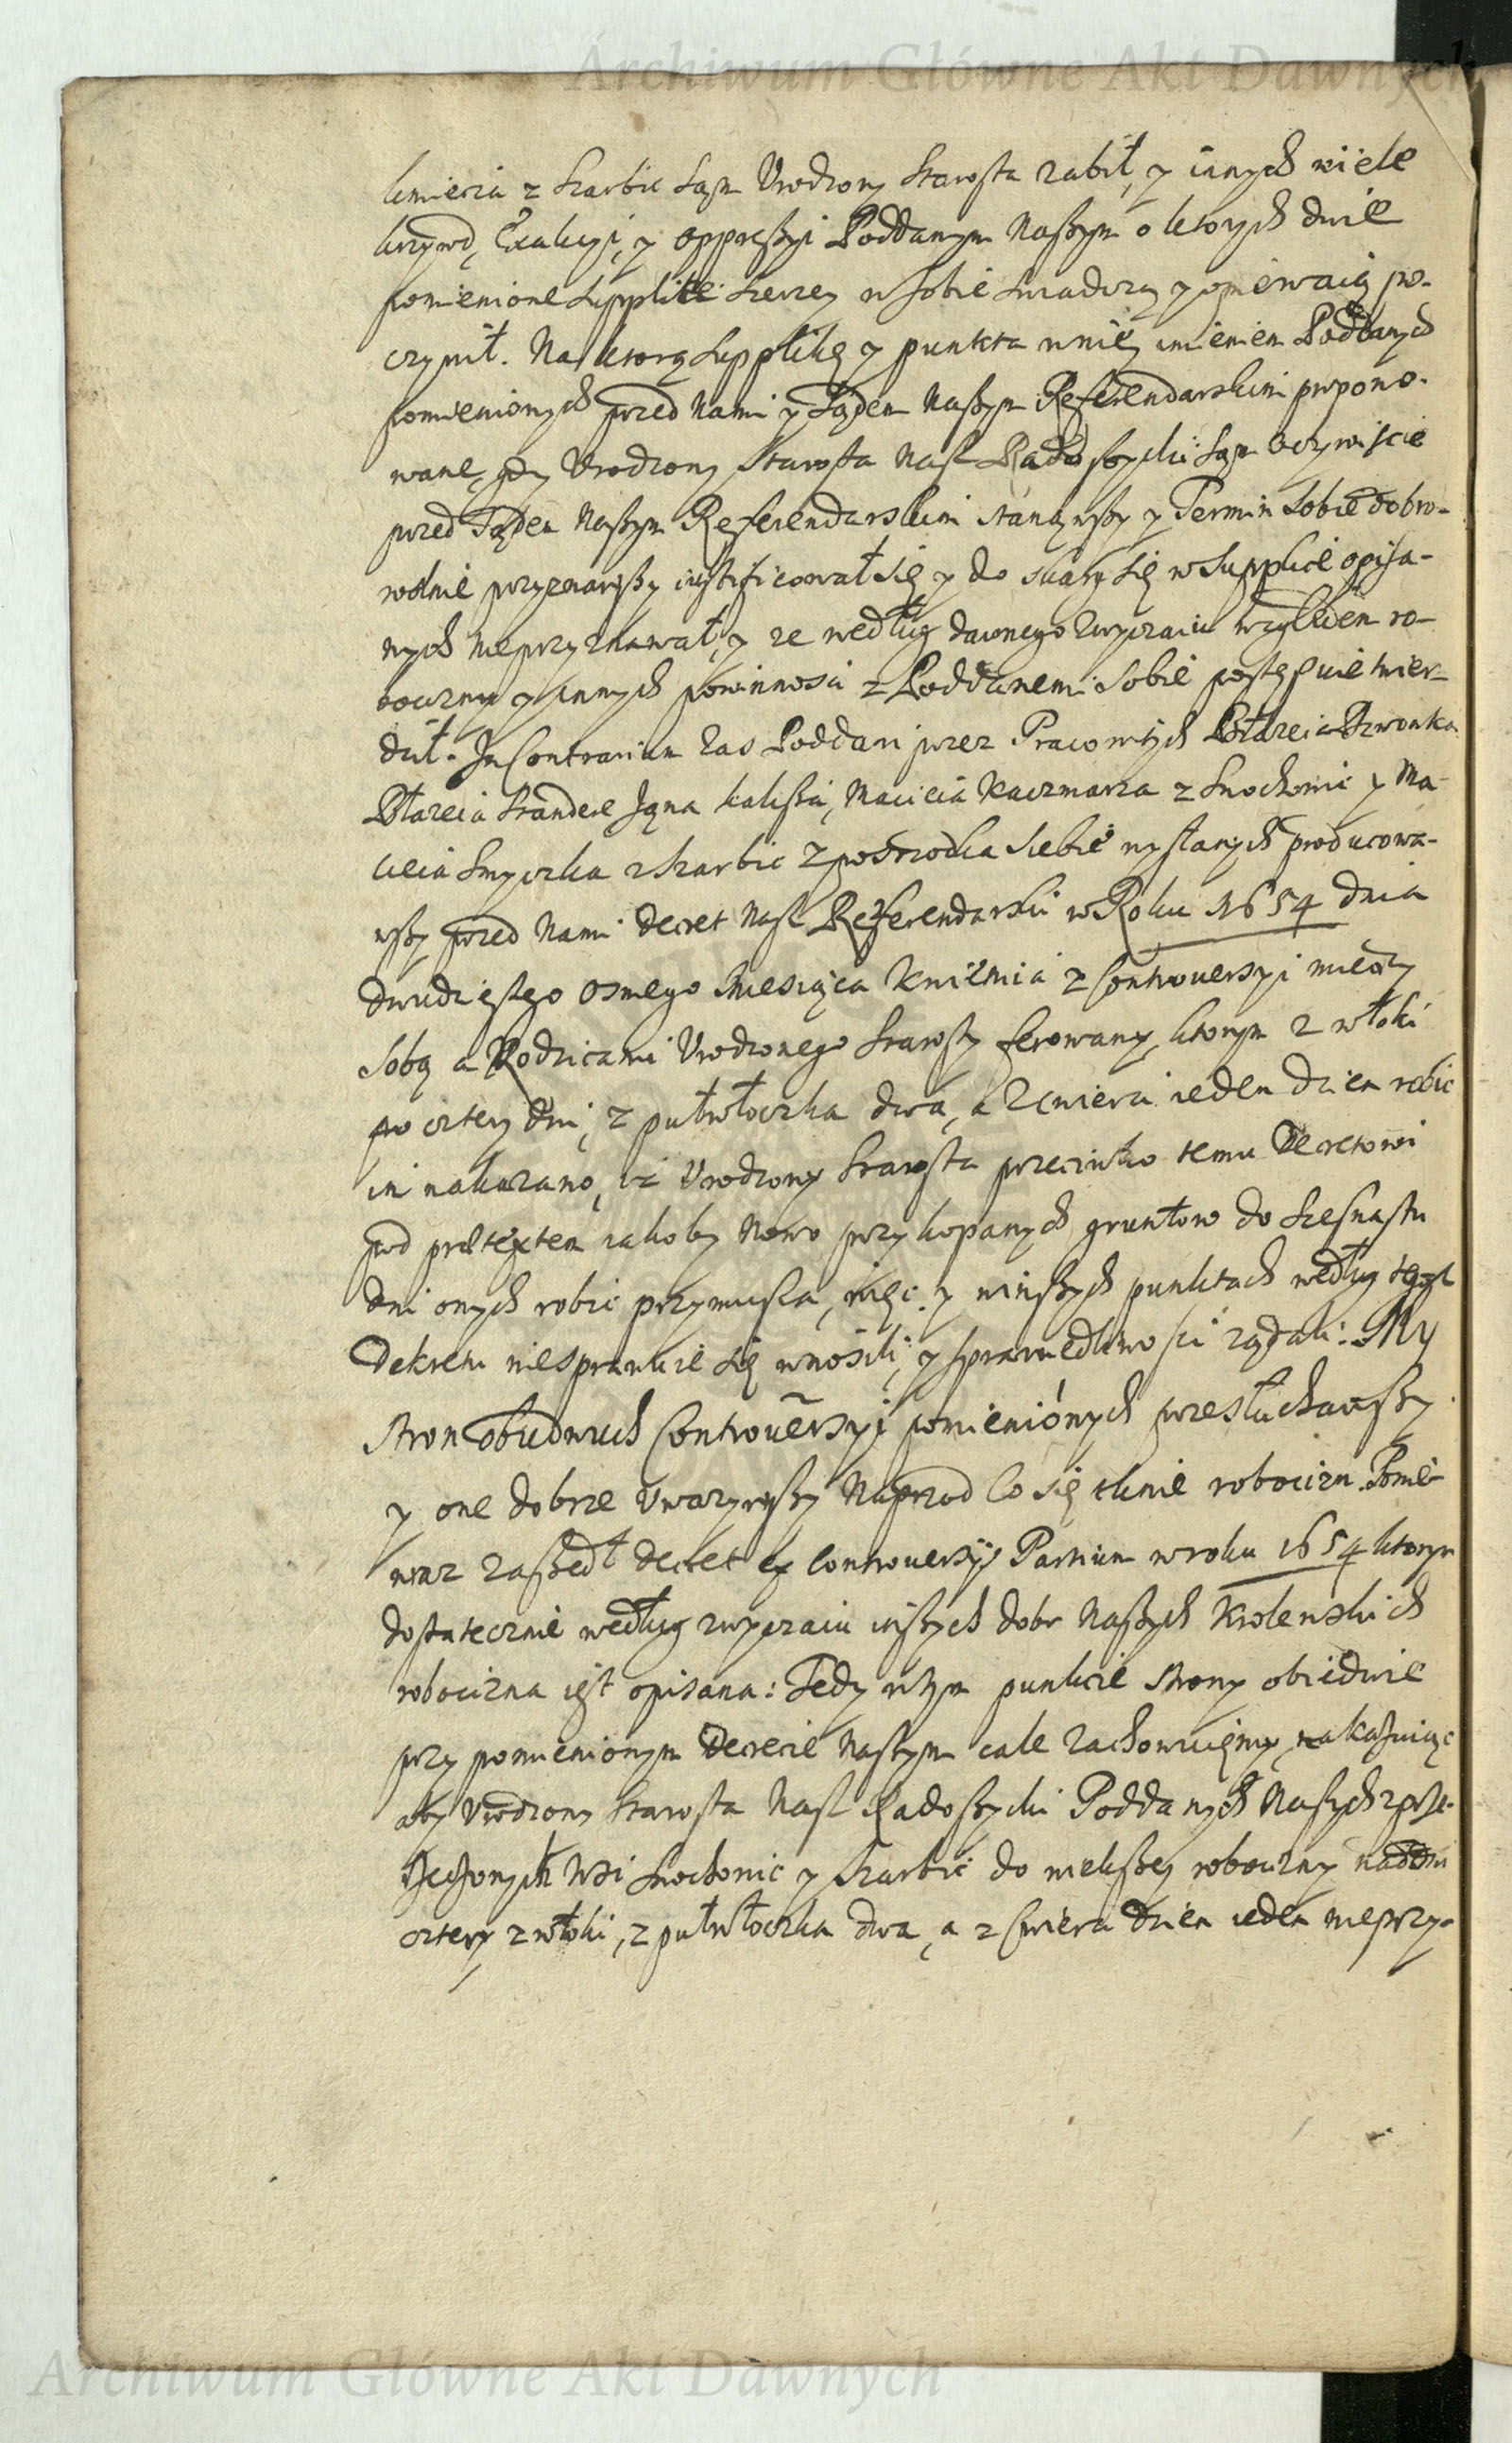 Archiwum Główne Akt Dawnych
kmiecia z Skarbic sąm Vrodzony Starosta zabił, y innych wiele
krzywd, Exakcyi, y oppressyi Poddanym Naszym o ktorych dwie
pomienione Supplike szerzey w sobie swiadczą y opiewaią po-
czynił. Na ktorą Supplikę y punkta w niey imieniem Poddanych
pomienionych przed Nami y Sądem Naszym Referendarskim propono-
wane, gdy Vrodzony Starosta Nasz Radoszycki sąm oczywiscie
przed Sądem Naszym Referendarskim stanąwszy y Termin sobie dobro-
wolnie przyznawszy iustificował się y do skarg się w Supplice opisa-
nych nieprzyznawał, y ze według dawnego zwyczaiu względem ro-
bocizny y innych powinnosci z Poddanemi sobie postępuie twier-
dził. In Contrarium zas Poddani przez Pracowitych Błazeia Dzwonka
Błazeia Skandere Jąna kalisza, Macieia Kaczmarza z Snochowic y Ma-
cieia Smyczka z Skarbic z posrzodka siebie wysłanych producowa-
wszy przed Nami Decret Nasz Referendarski w Roku 1654 dnia
dwudziestego osmego Miesiąca Kwietnia z Controversyi między
sobą a Rodzicami Vrodzonego Starosty ferowany, ktorym z włoki
po cztery dni, z pułwłoczka dwa, a z cwierci ieden dzien robic
im nakazano, iz Vrodzony Starosta przeciwko temu Decretowi
pod praetextem iakoby nowo przykopanych gruntow do szesnastu
dni onych robic przymusza, więc y w inszych punktach według tegosz
Dekretu niesprawuie się wnosili, y sprawiedliwosci ządali: My
stron obudwuch Controversyi pomienionych przesłuchawszy
y one dobrze Vwazywszy Naprzod Co się tknie robocizn. Ponie-
waz zaszedł Decret ex Controversys Partium w roku 1654 ktorym
dostatecznie według zwyczaiu inszych dobr Naszych Krolewskich
robocizna iest opisana: Tedy w tym punkcie strony obiedwie
przy pomienionym Decrecie Naszym cale zachowuięmy, nakazuiąc
aby Vrodzony Starosta Nasz Radoszycki Poddanych Naszych z prze-
rzeczonych Wsi Snochowic y Skarbic do wiekszey robocizny nad dni
cztery z włoki, z pułwłoczka dwa, a z cwierci dzien ieden nieprzy-
Archiwum Główne Akt Dawnych